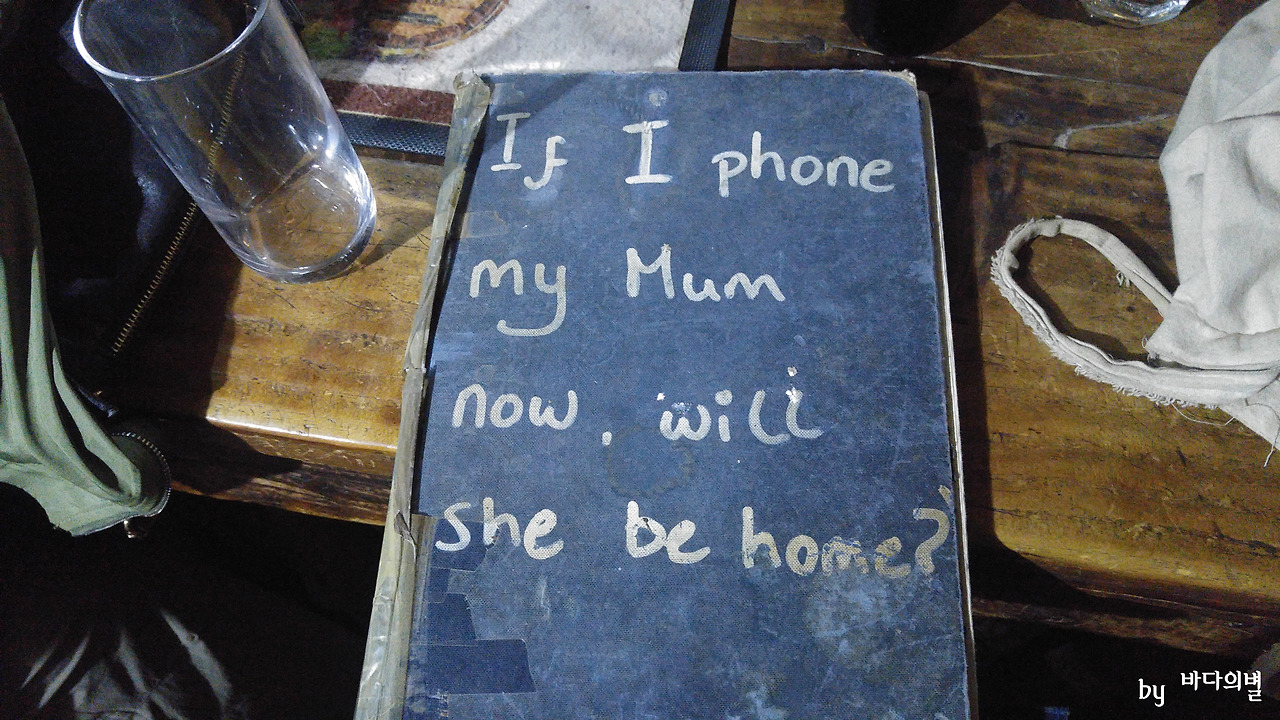 If I phone
my Mum
now, will
she be home?
by 바다의별